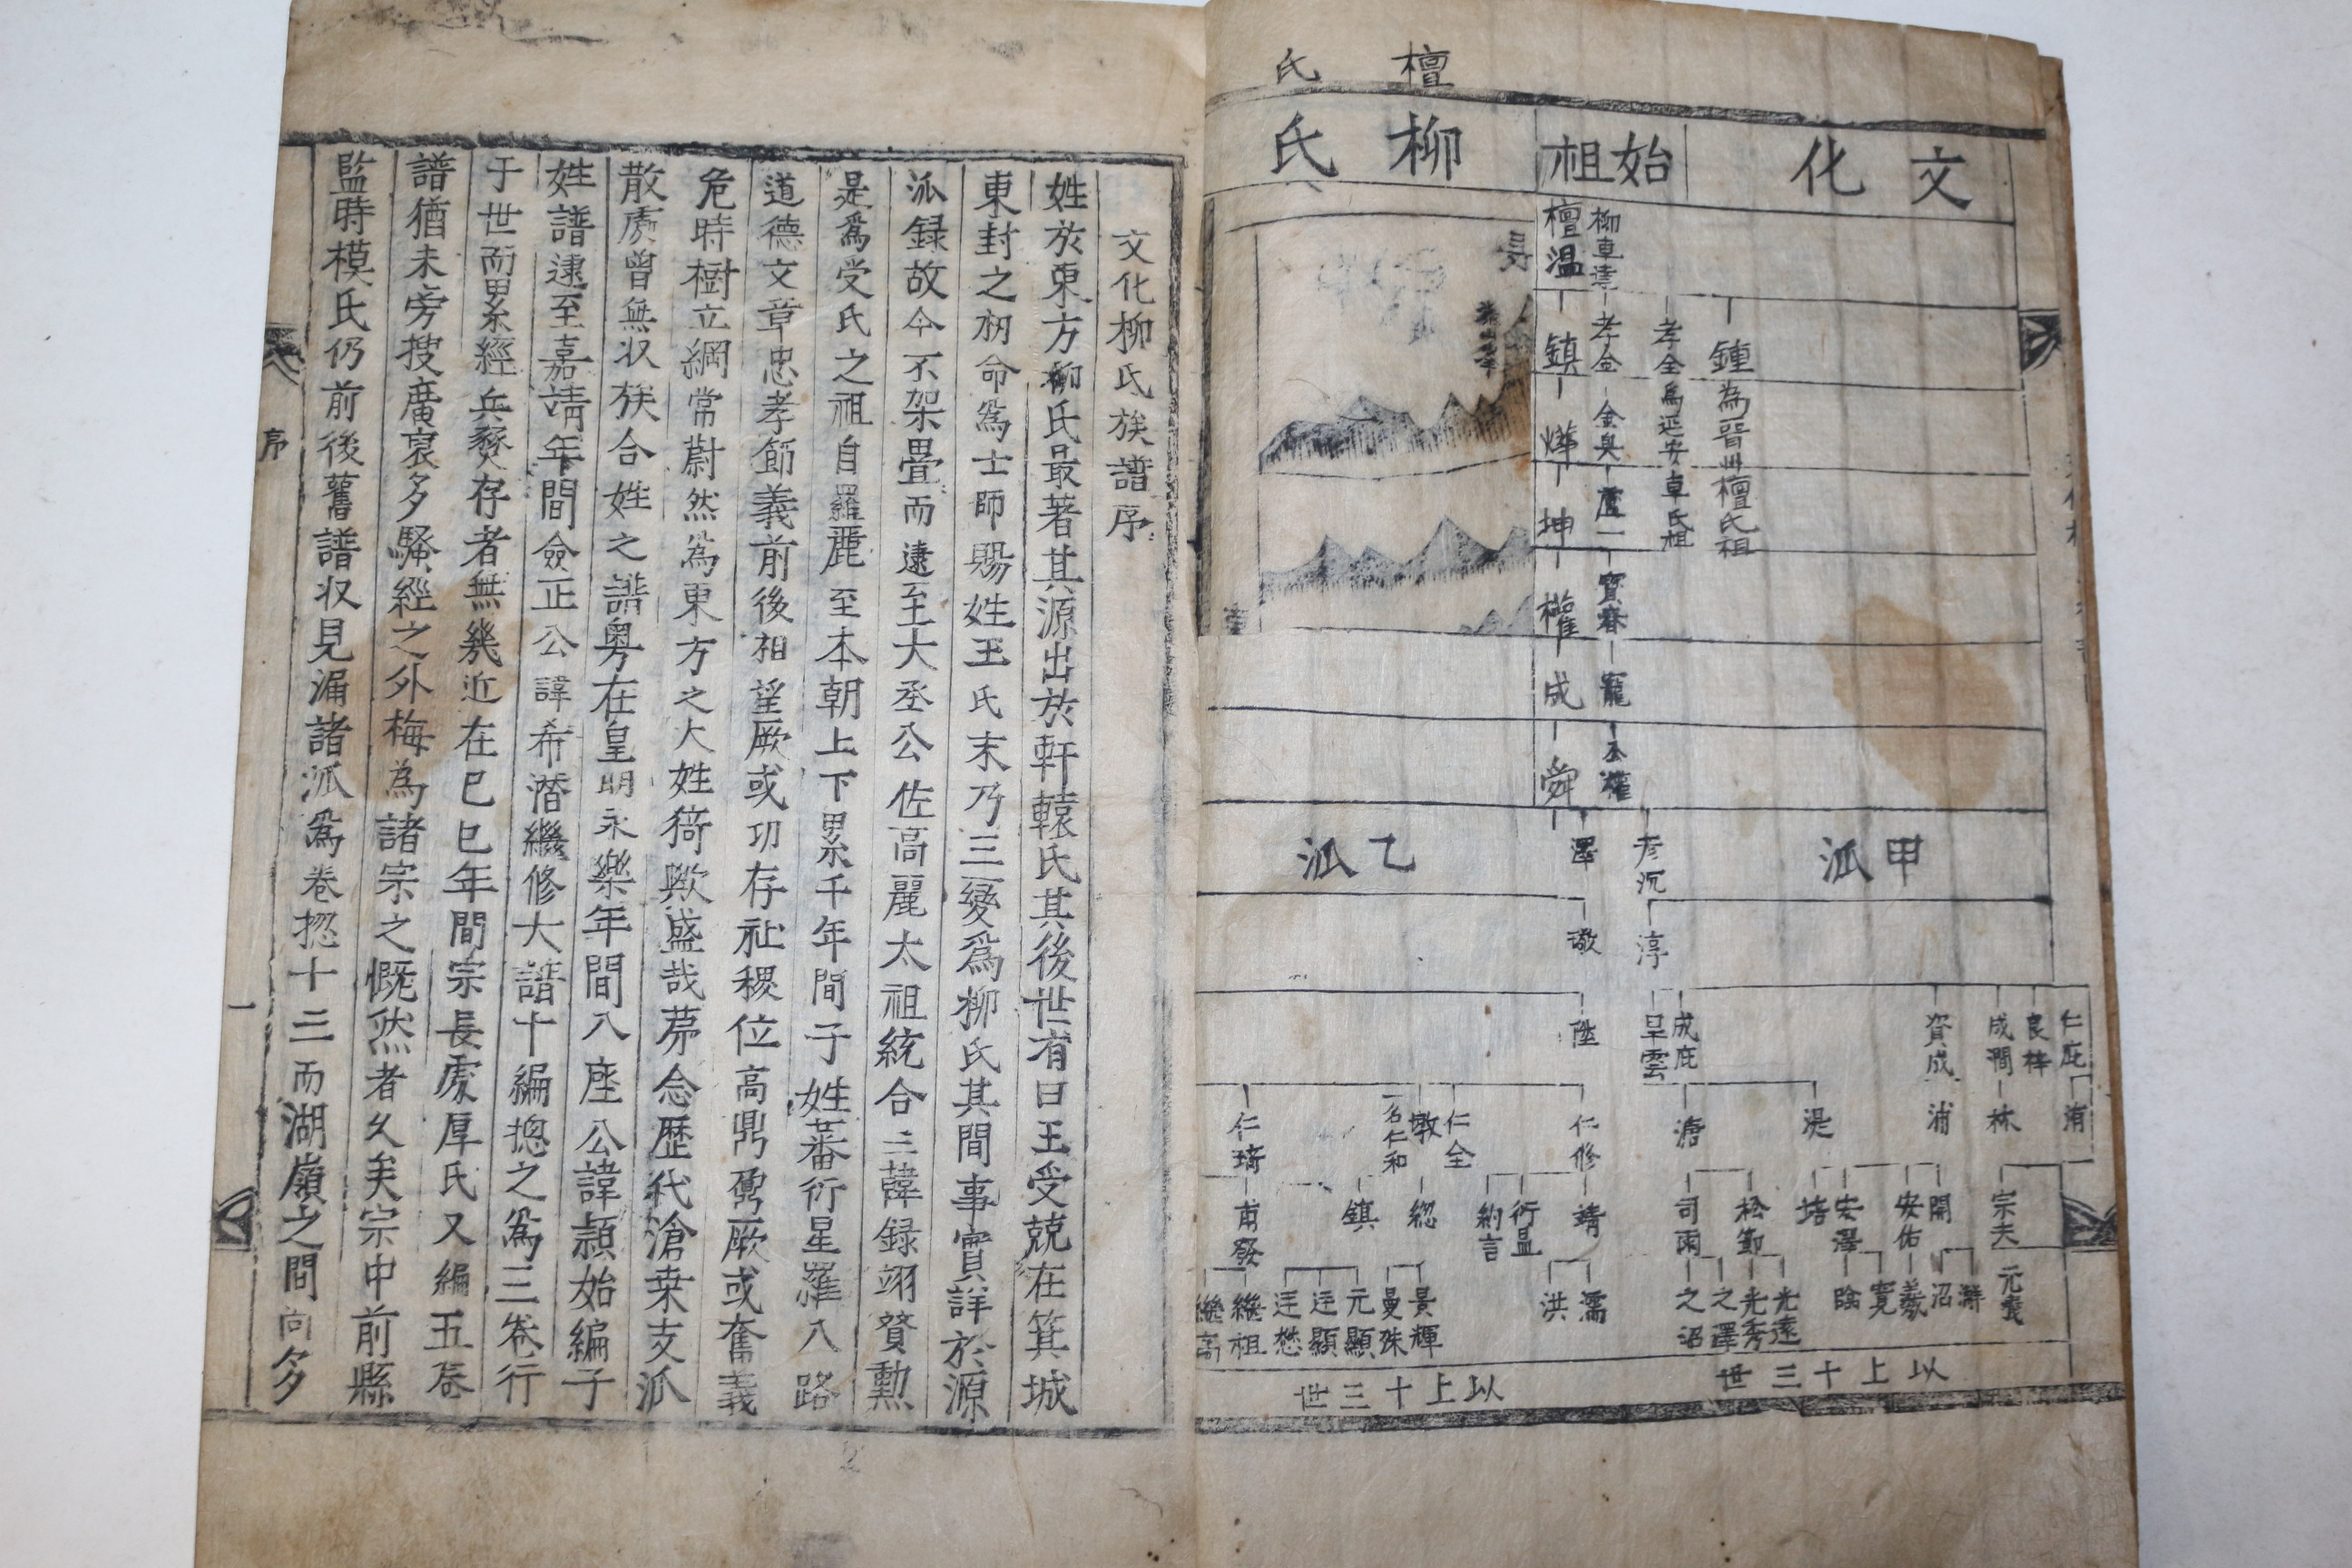 檀氏
文化
始祖
柳氏
檀溫
柳車達
鎮
孝金
孝全爲延安卓氏祖
鍾為晉州檀氏祖
金奐
坤
盧一
權
寶春
成
寵
舜
公權
甲派
乙派
澤
彦沉
璥
淳
陞
成庇
資成
成澗
良梓
仁庇
仁琦
墩
一名仁和
仁全
仁修
濭
湜
浦
林
洧
甫發
鎮
緫
納言
衍昷
靖
司雨
松節
塔
安澤
安佑
開
宗夫
繼祖
元顯
曼殊
景輝
洪
濡
之沼
之澤
光秀
光遠
陰
寬
羲
沼
以上十三世
以上十三世
文化柳氏族譜序
姓於東方柳氏最著其源出於軒轅氏其後世有曰王受兢在箕城
東封之初命爲士師賜姓王氏末乃三變爲柳氏其間事實詳於源
派録故今不架疊而逮至大丞公佐高麗太祖統合三韓録翊贊勳
是爲受氏之祖自羅麗至本朝上下累千年間子姓蕃衍星羅八路
道德文章忠孝節義前後相望厥或功存社稷位高鼎鼐厥或奮義
危時樹立綱常蔚然爲東方之大姓猗歟盛哉第念歷代滄桑支派
散處曾無収族合姓之譜粤在皇明永樂年間八座公諱頴始編子
姓譜逮至嘉靖年間僉正公諱希潛繼修大譜十編摠之爲三卷行
于世而累經兵燹存者無幾近在己巳年間宗長處厚氏又編五卷
譜猶未旁搜廣裒多騷經之外梅為諸宗之慨然者久矣宗中前縣
監時模氏仍前後舊譜収見漏諸派爲卷摠十三而湖嶺之間尚多
序
一
2